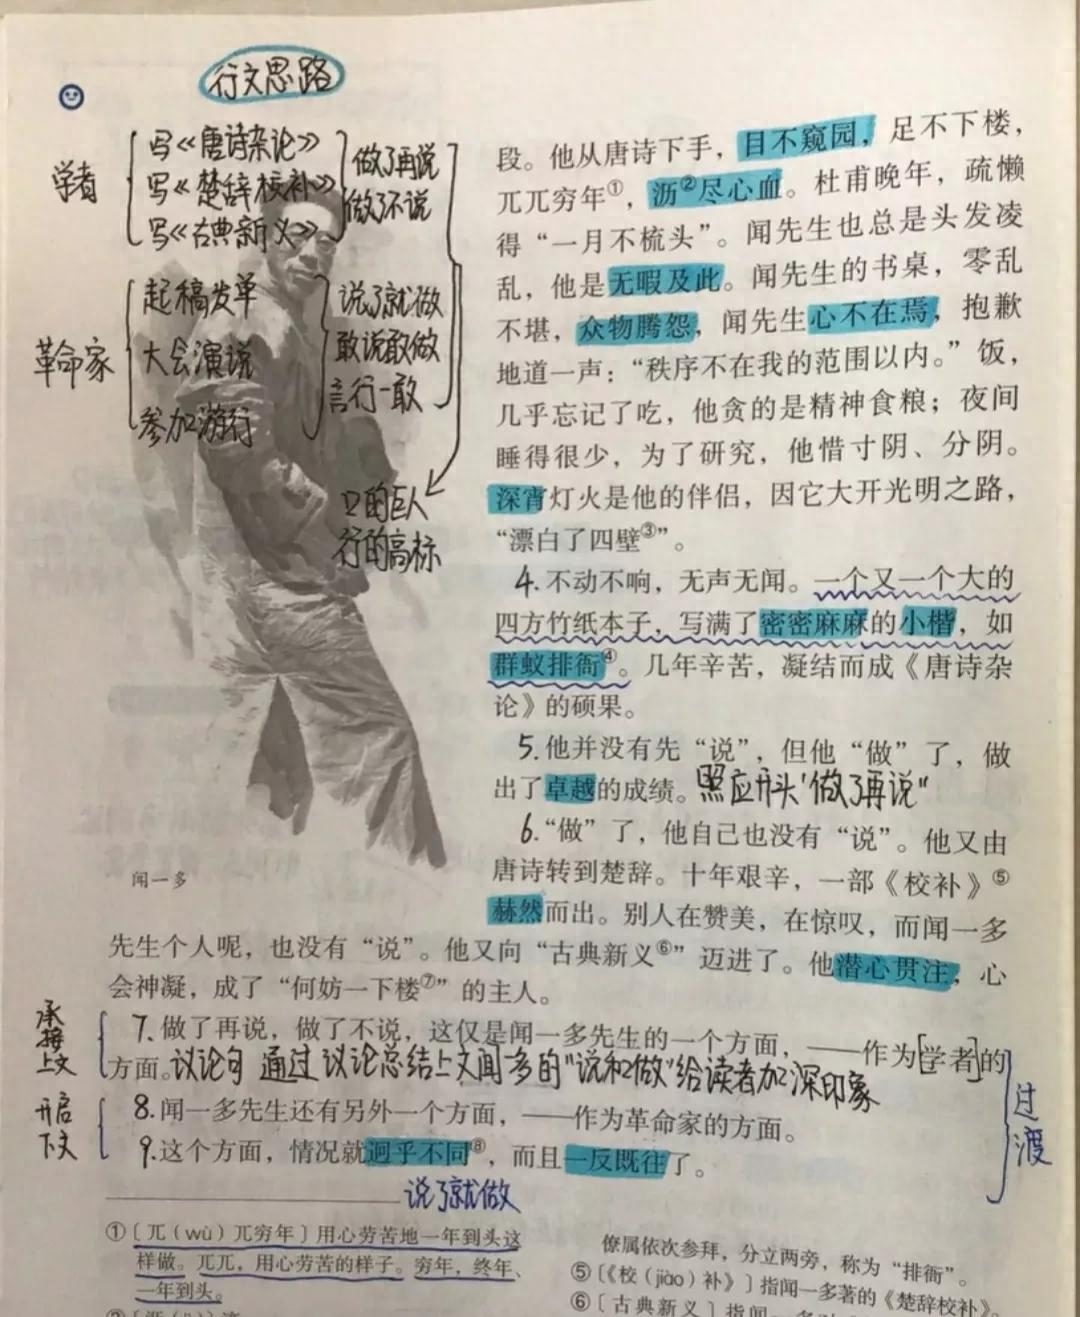 行文思路
学者
写《唐诗杂论》
写《楚辞校补》
写《古典新义》
做了再说
做了不说
革命家
起稿发单
大会演说
参加游行
说了就做
敢说敢做
言行一敢
口的巨人
行的高标
闻一多
段。他从唐诗下手，目不窥园，足不下楼，
兀兀穷年①，沥②尽心血。杜甫晚年，疏懒
得“一月不梳头”。闻先生也总是头发凌
乱，他是无暇及此。闻先生的书桌，零乱
不堪，众物腾怨，闻先生心不在焉，抱歉
地道一声：“秩序不在我的范围以内。”饭，
几乎忘记了吃，他贪的是精神食粮；夜间
睡得很少，为了研究，他惜寸阴、分阴。
深宵灯火是他的伴侣，因它大开光明之路，
“漂白了四壁③”。
4.不动不响，无声无闻。一个又一个大的
四方竹纸本子，写满了密密麻麻的小楷，如
群蚁排衙④。几年辛苦，凝结而成《唐诗杂
论》的硕果。
5.他并没有先“说”，但他“做”了，做
出了卓越的成绩。照应开头'做了再说"
6.“做”了，他自己也没有“说”。他又由
唐诗转到楚辞。十年艰辛，一部《校补》⑤
赫然而出。别人在赞美，在惊叹，而闻一多
先生个人呢，也没有“说”。他又向“古典新义⑥”迈进了。他潜心贯注，心
会神凝，成了“何妨一下楼⑦”的主人。
承接上文
7.做了再说，做了不说，这仅是闻一多先生的一个方面，——作为[学者]的
方面。议论句 通过议论总结上文闻多的"说和做"给读者加深印象
开启下文
8.闻一多先生还有另外一个方面，——作为革命家的方面。
9.这个方面，情况就迥乎不同⑧，而且一反既往了。
过渡
说了就做
①〔兀（wù）兀穷年〕用心劳苦地一年到头这
样做。兀兀，用心劳苦的样子。穷年，终年、
一年到头。
僚属依次参拜，分立两旁，称为“排衙”。
⑤〔《校（jiào）补》〕指闻一多著的《楚辞校补》。
⑥〔古典新义〕指闻一多